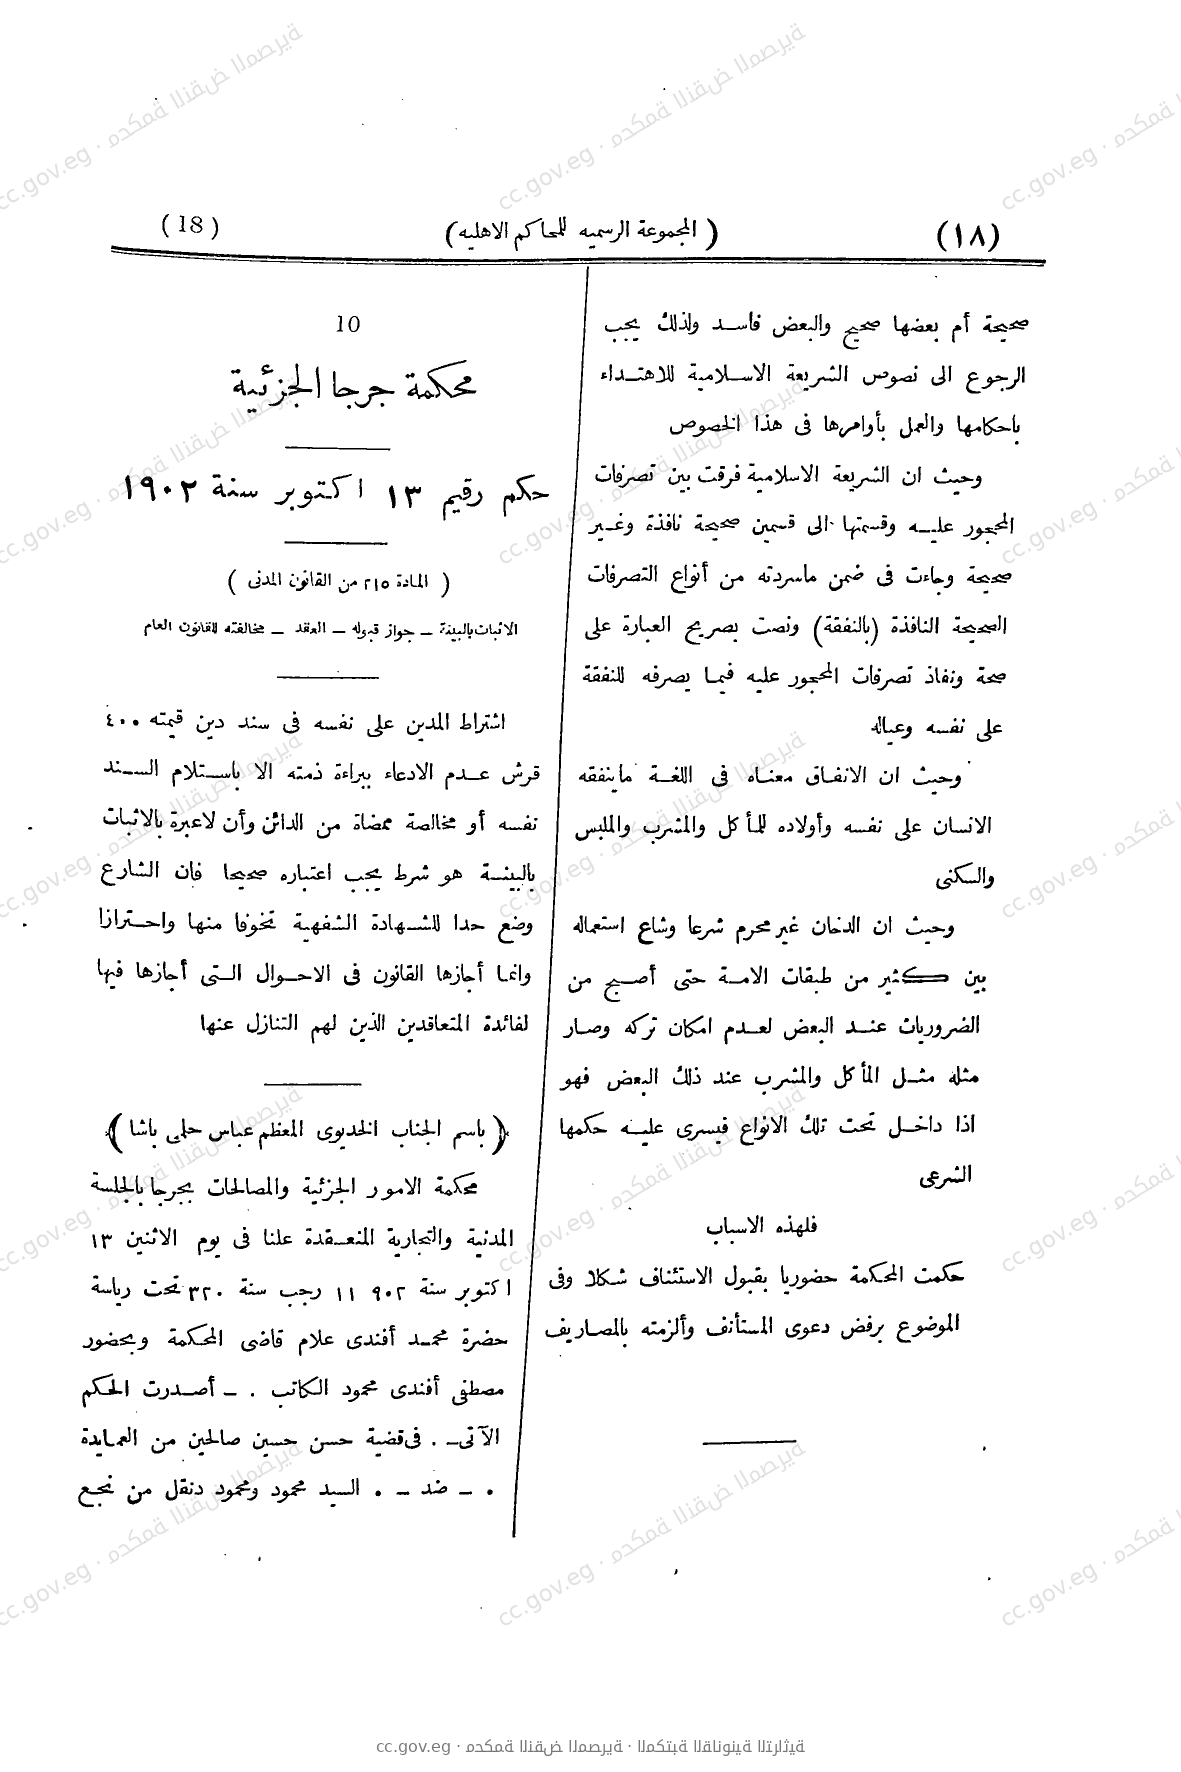 (١٨)
( المجموعة الرسميه للمحاكم الاهليه )
( 18 )
صحيحة أم بعضها صحيح والبعض فاسد ولذلك يجب
الرجوع الى نصوص الشريعة الاسلامية للاهتداء
باحكامها والعمل بأوامرها فى هذا الخصوص
وحيث ان الشريعة الاسلامية فرقت بين تصرفات
المحجور عليه وقسمتها الى قسمين صحيحة نافذة وغير
صحيحة وجاءت فى ضمن ماسردته من أنواع التصرفات
الصحيحة النافذة (بالنفقة) ونصت بصريح العبارة على
صحة ونفاذ تصرفات المحجور عليه فيما يصرفه للنفقة
على نفسه وعياله
وحيث ان الانفاق معناه فى اللغة ماينفقه
الانسان على نفسه وأولاده للمأكل والمشرب والملبس
والسكنى
وحيث ان الدخان غير محرم شرعا وشاع استعماله
بين كثير من طبقات الامة حتى أصبح من
الضروريات عند البعض لعدم امكان تركه وصار
مثله مثل المأكل والمشرب عند ذلك البعض فهو
اذا داخل تحت تلك الانواع فيسرى عليه حكمها
الشرعى
فلهذه الاسباب
حكمت المحكمة حضوريا بقبول الاستئناف شكلا وفى
الموضوع برفض دعوى المستأنف وألزمته بالمصاريف
10
محكمة جرجا الجزئية
حكم رقيم ١٣ اكتوبر سنة ١٩٠٢
( المادة ٢١٥ من القانون المدنى )
الاثبات بالبينة – جواز قبوله – العقد – مخالفته للقانون العام
اشتراط المدين على نفسه فى سند دين قيمته ٤٠٠
قرش عدم الادعاء ببراءة ذمته الا باستلام السند
نفسه أو مخالصة ممضاة من الدائن وأن لاعبرة بالاثبات
بالبينة هو شرط يجب اعتباره صحيحا فان الشارع
وضع حدا للشهادة الشفهية تخوفا منها واحترازا
وانما أجازها القانون فى الاحوال التى أجازها فيها
لفائدة المتعاقدين الذين لهم التنازل عنها
( باسم الجناب الخديوى المعظم عباس حلمى باشا )
محكمة الامور الجزئية والمصالحات بجرجا بالجلسة
المدنية والتجارية المنعقدة علنا فى يوم الاثنين ١٣
اكتوبر سنة ٩٠٢ ١١ رجب سنة ٣٢٠ تحت رياسة
حضرة محمد أفندى علام قاضى المحكمة وبحضور
مصطفى أفندى محمود الكاتب . – أصدرت الحكم
الآتى – . فى قضية حسن حسين صالحين من العمايدة
. – ضد – . السيد محمود ومحمود دنقل من نجع
cc.gov.eg · محكمة النقض المصرية · المكتبة القانونية التراثية